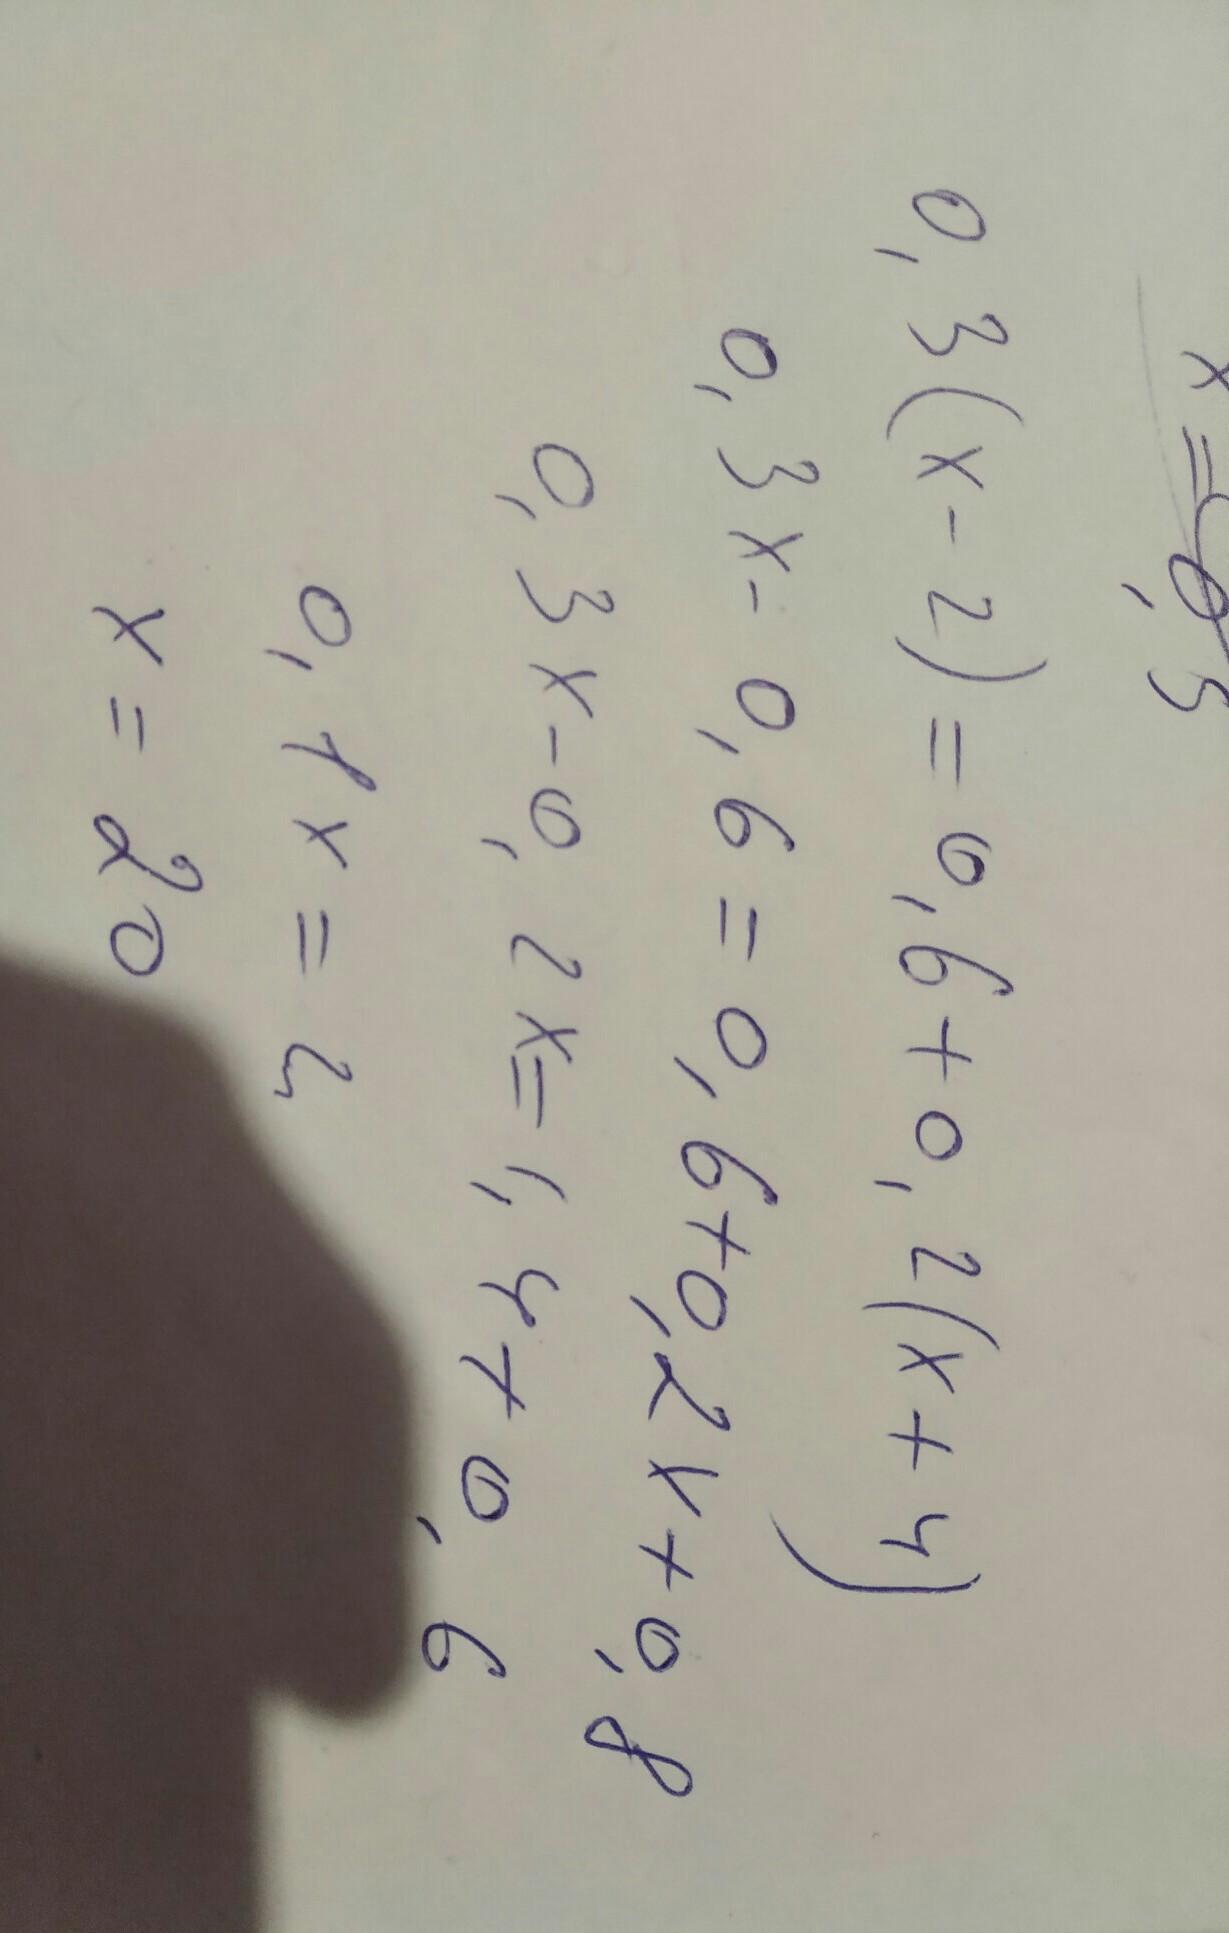 x=0,5
0,3(x-2)=0,6+0,2(x+4)
0,3x-0,6=0,6+0,2x+0,8
0,3x-0,2x=1,4+0,6
0,1x=2
x=20